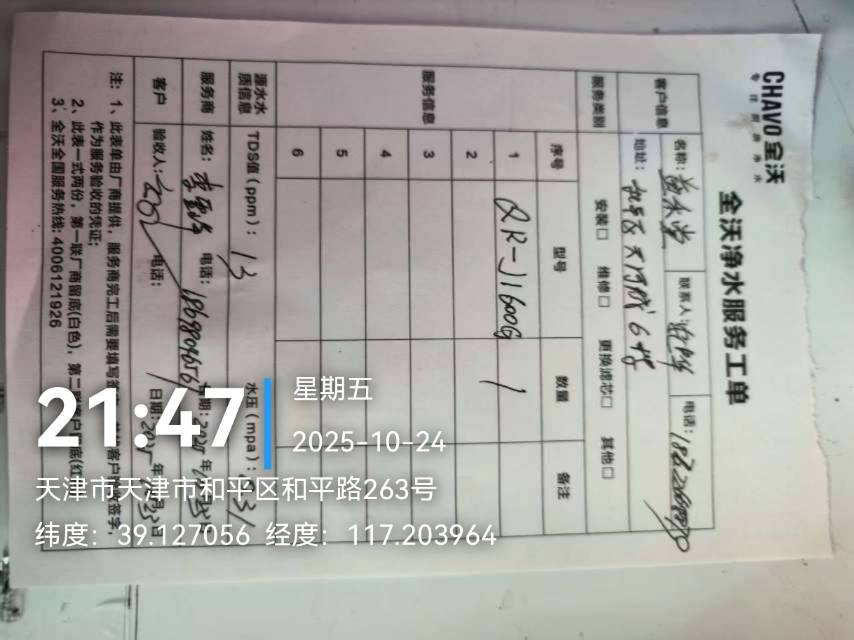 CHAVO 全沃
专注厨房净水
全沃净水服务工单
客户信息 名称: 联系人: 电话:
地址: 和平区天河城6楼
服务类别 安装□ 维修□ 更换滤芯□ 其他□
服务信息 序号 型号 数量 备注
1 QR-J1600G 1
2
3
4
5
6
源水水质信息 TDS值(ppm): 13 水压(mpa):
服务商 姓名: 电话: 日期: 2025年
客户 验收人: 电话: 日期: 2025年
注: 1、此表单由厂商提供, 服务商完工后需要填写
作为服务验收的凭证;
2、此表一式两份, 第一联厂商留底(白色), 第二
3、全沃全国服务热线: 4006121926
21:47
星期五
2025-10-24
天津市天津市和平区和平路263号
纬度: 39.127056 经度: 117.203964